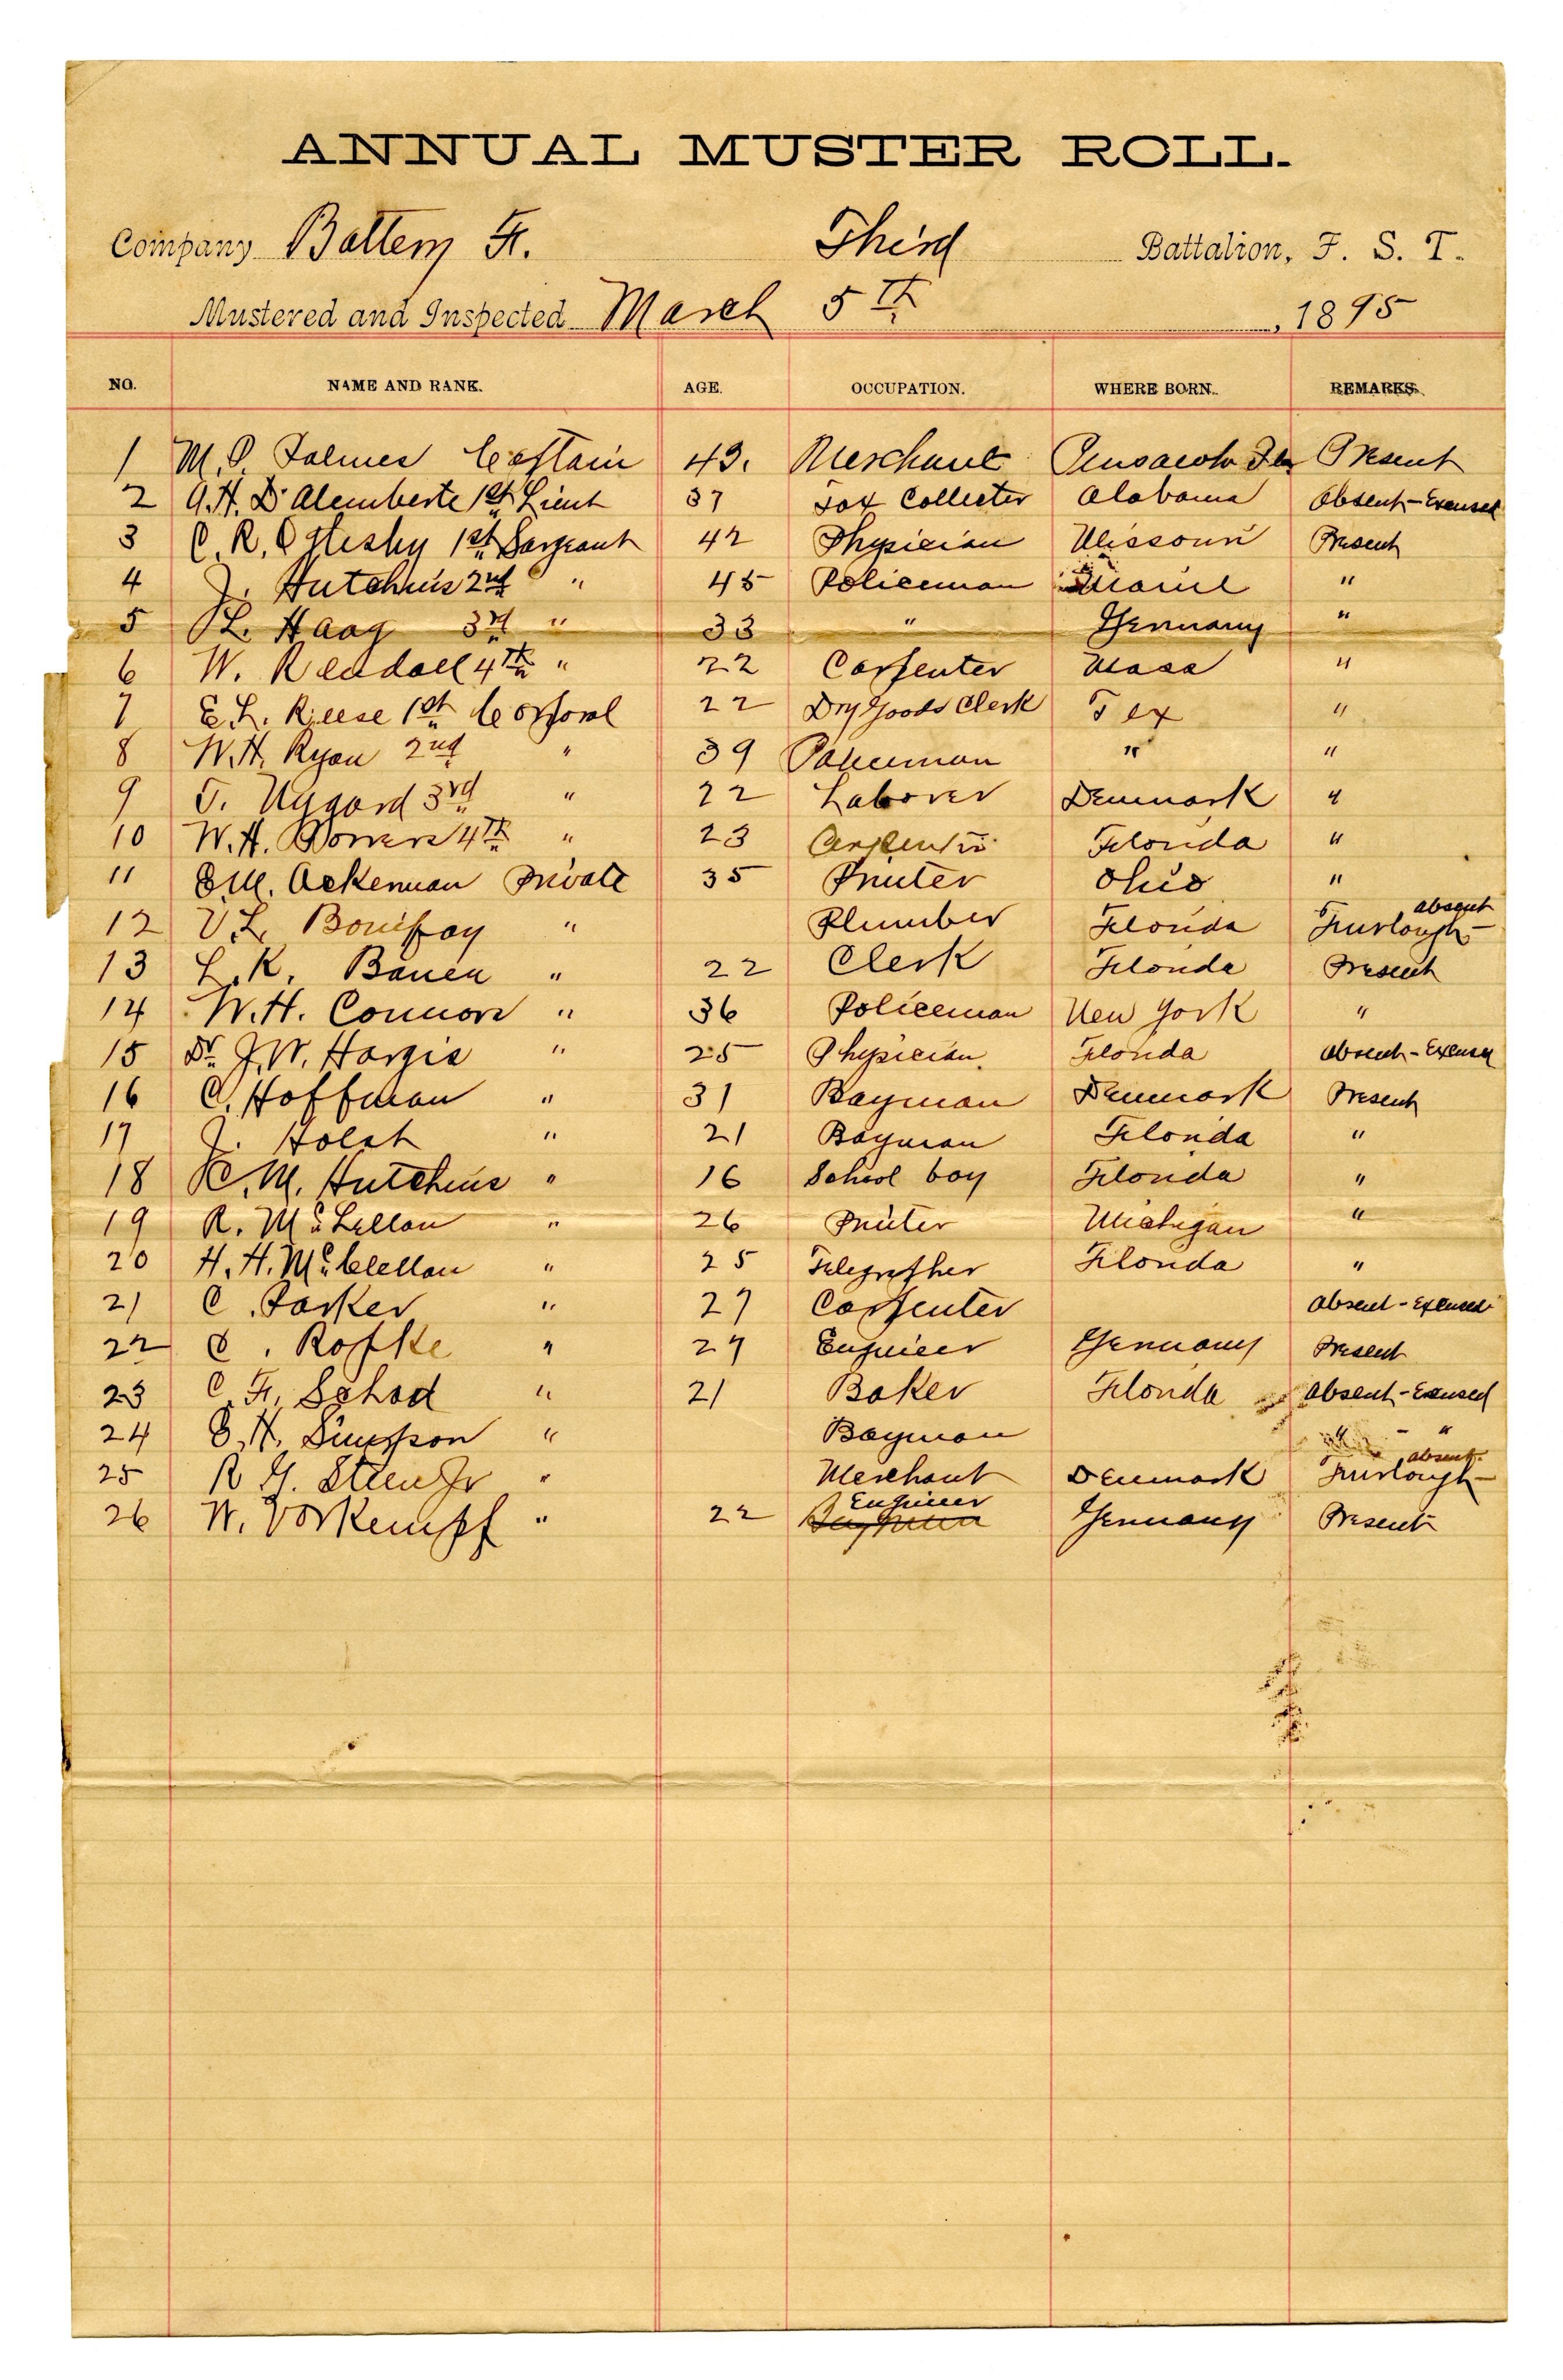 ANNUAL MUSTER ROLL.
Company Battery F. Third Battalion, F. S. T.
Mustered and Inspected March 5th, 1895
NO. NAME AND RANK. AGE. OCCUPATION. WHERE BORN. REMARKS.
1 Captain 43. Merchant Pensacola Fla Present
2 A.H. D'Alemberte 1st Lieut 37 Tax Collector Alabama Absent-Excused
3 C. R. Oglesby 1st Sargeant 42 Physician Missouri Present
4 J. Hutchins 2nd " 45 Policeman "
5 L. Haag 3rd " 33 " Germany "
6 W. Rendall 4th " 22 Carpenter Mass "
7 E L. Reese 1st Corporal 22 Dry Goods Clerk Tex "
8 W.H. Ryan 2nd " 39 Policeman " "
9 T. Nygard 3rd " 22 Laborer Denmark "
10 W.H. 4th " 23 Carpenter Florida "
11 E.M. Ackerman Private 35 Printer Ohio "
12 V.L. Bonifay " Plumber Florida Furlough- absent
13 L.K. Bauen " 22 Clerk Florida Present
14 W.H. Connors " 36 Policeman New York "
15 Dr. J.W. Hargis " 25 Physician Florida Absent-Excused
16 C. Hoffman " 31 Bayman Denmark Present
17 J. Holst " 21 Bayman Florida "
18 C.M. Hutchins " 16 School boy Florida "
19 R. McLellan " 26 Printer Michigan "
20 H.H. McClellan " 25 Telegrapher Florida "
21 C. Parker " 27 Carpenter Absent-Excused
22 Ropke " 27 Engineer Germany Present
23 C.F. Schad " 21 Baker Florida Absent-Excused
24 H. Simpson " Bayman - "
25 R G. Steen Jr " Merchant Denmark Furlough- absent
26 W. Vorkempf " 22 Bayman Engineer Germany Present